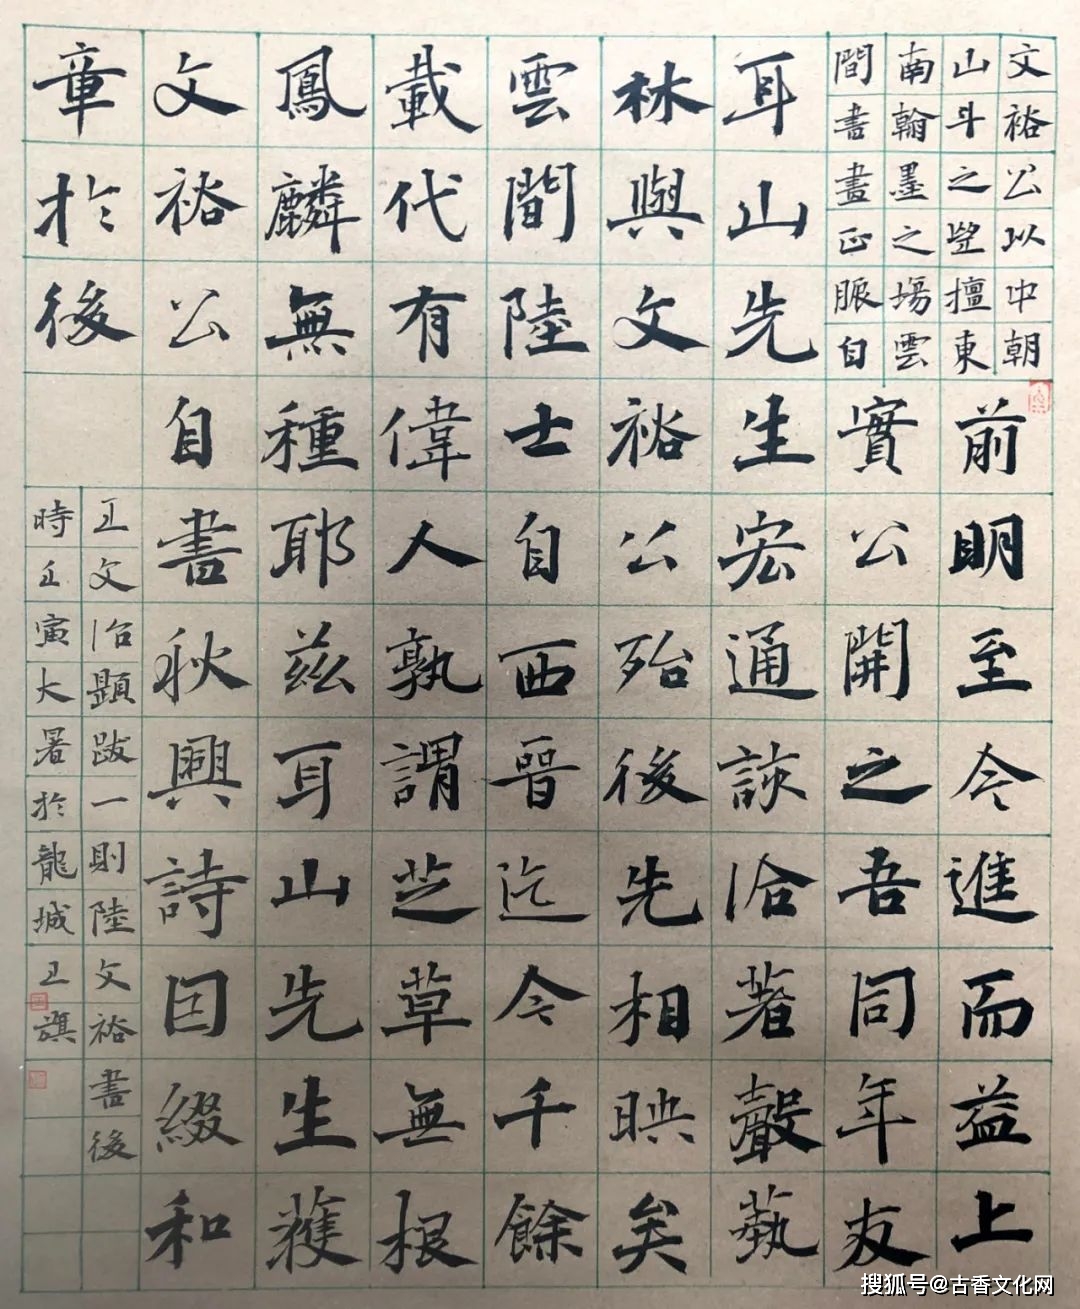 文裕公以中朝
山斗之望擅東
南翰墨之場雲
間書畫正脈自
前明至今進而益上
實公開之吾同年友
耳山先生宏通該洽著聲藝
林與文裕公殆後先相映矣
雲間陸士自西晉迄今千餘
載代有偉人孰謂芝草無根
鳳麟無種耶茲耳山先生獲
文裕公自書秋興詩因綴和
章於後
王文治題跋一則陸文裕書後
時壬寅大暑於龍城王旗
搜狐号@古香文化网